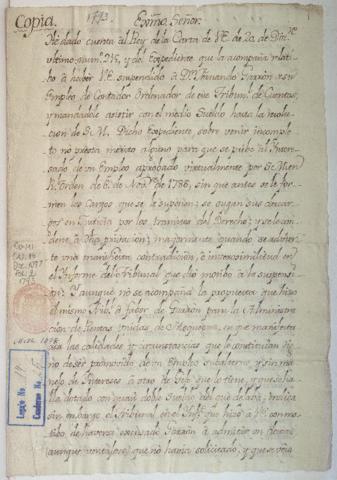 Copia. 1793 Exmo. Señor.
He dado cuenta al Rey de la Carta de V.E. de 20 de Dizre.
ultimo num.° 215, y del Expediente que la acompaña relati-
bo à haber V.E. suspendido à Dn. Fernando Garzon, en su
Empleo de Contador Ordenador de ese Tribunl. de Cuentas,
y mandadole asistir con el medio Sueldo hasta la resolu-
cion de S. M. Dicho Expediente sobre venir incomple-
to no presta merito alguno para que se prive al Intere-
sado de un Empleo aprobado por S. M. en
Rl. Orden de 6. de Nove. de 1786, sin que antes se le for-
men los Cargos que se le suponen; se oigan sus descar-
gos en Justicia por los tramites del Derecho; y se le con-
dene à Mayormente quando se advier-
te una manifiesta contradicion, è inverosimilitud en
el Informe del Tribunal que dió motivo à la suspen-
sion; Y aunque no se acompaña la propuesta que hizo
el mismo à favor de Garzon para la Administra-
cion de Rentas Unidas de Arequipa, en que manifesta-
ria las calidades y circunstancias que le constituian dig-
no de ser promovido de un Empleo subalterno, y sin ma-
nejo de Intereses à otro de Gefe que lo tiene, y que se ha-
lla dotado con quasi doble Sueldo del que dexaba; Indica
sin embargo el Tribunal en el Inffe. que hizo à V.E. con mo-
tibo de haverse escusado Garzon à admitir un destino
(aunque ventajoso) que no havia solicitado, y que se veia
Legajo No. 19
Cuaderno No.